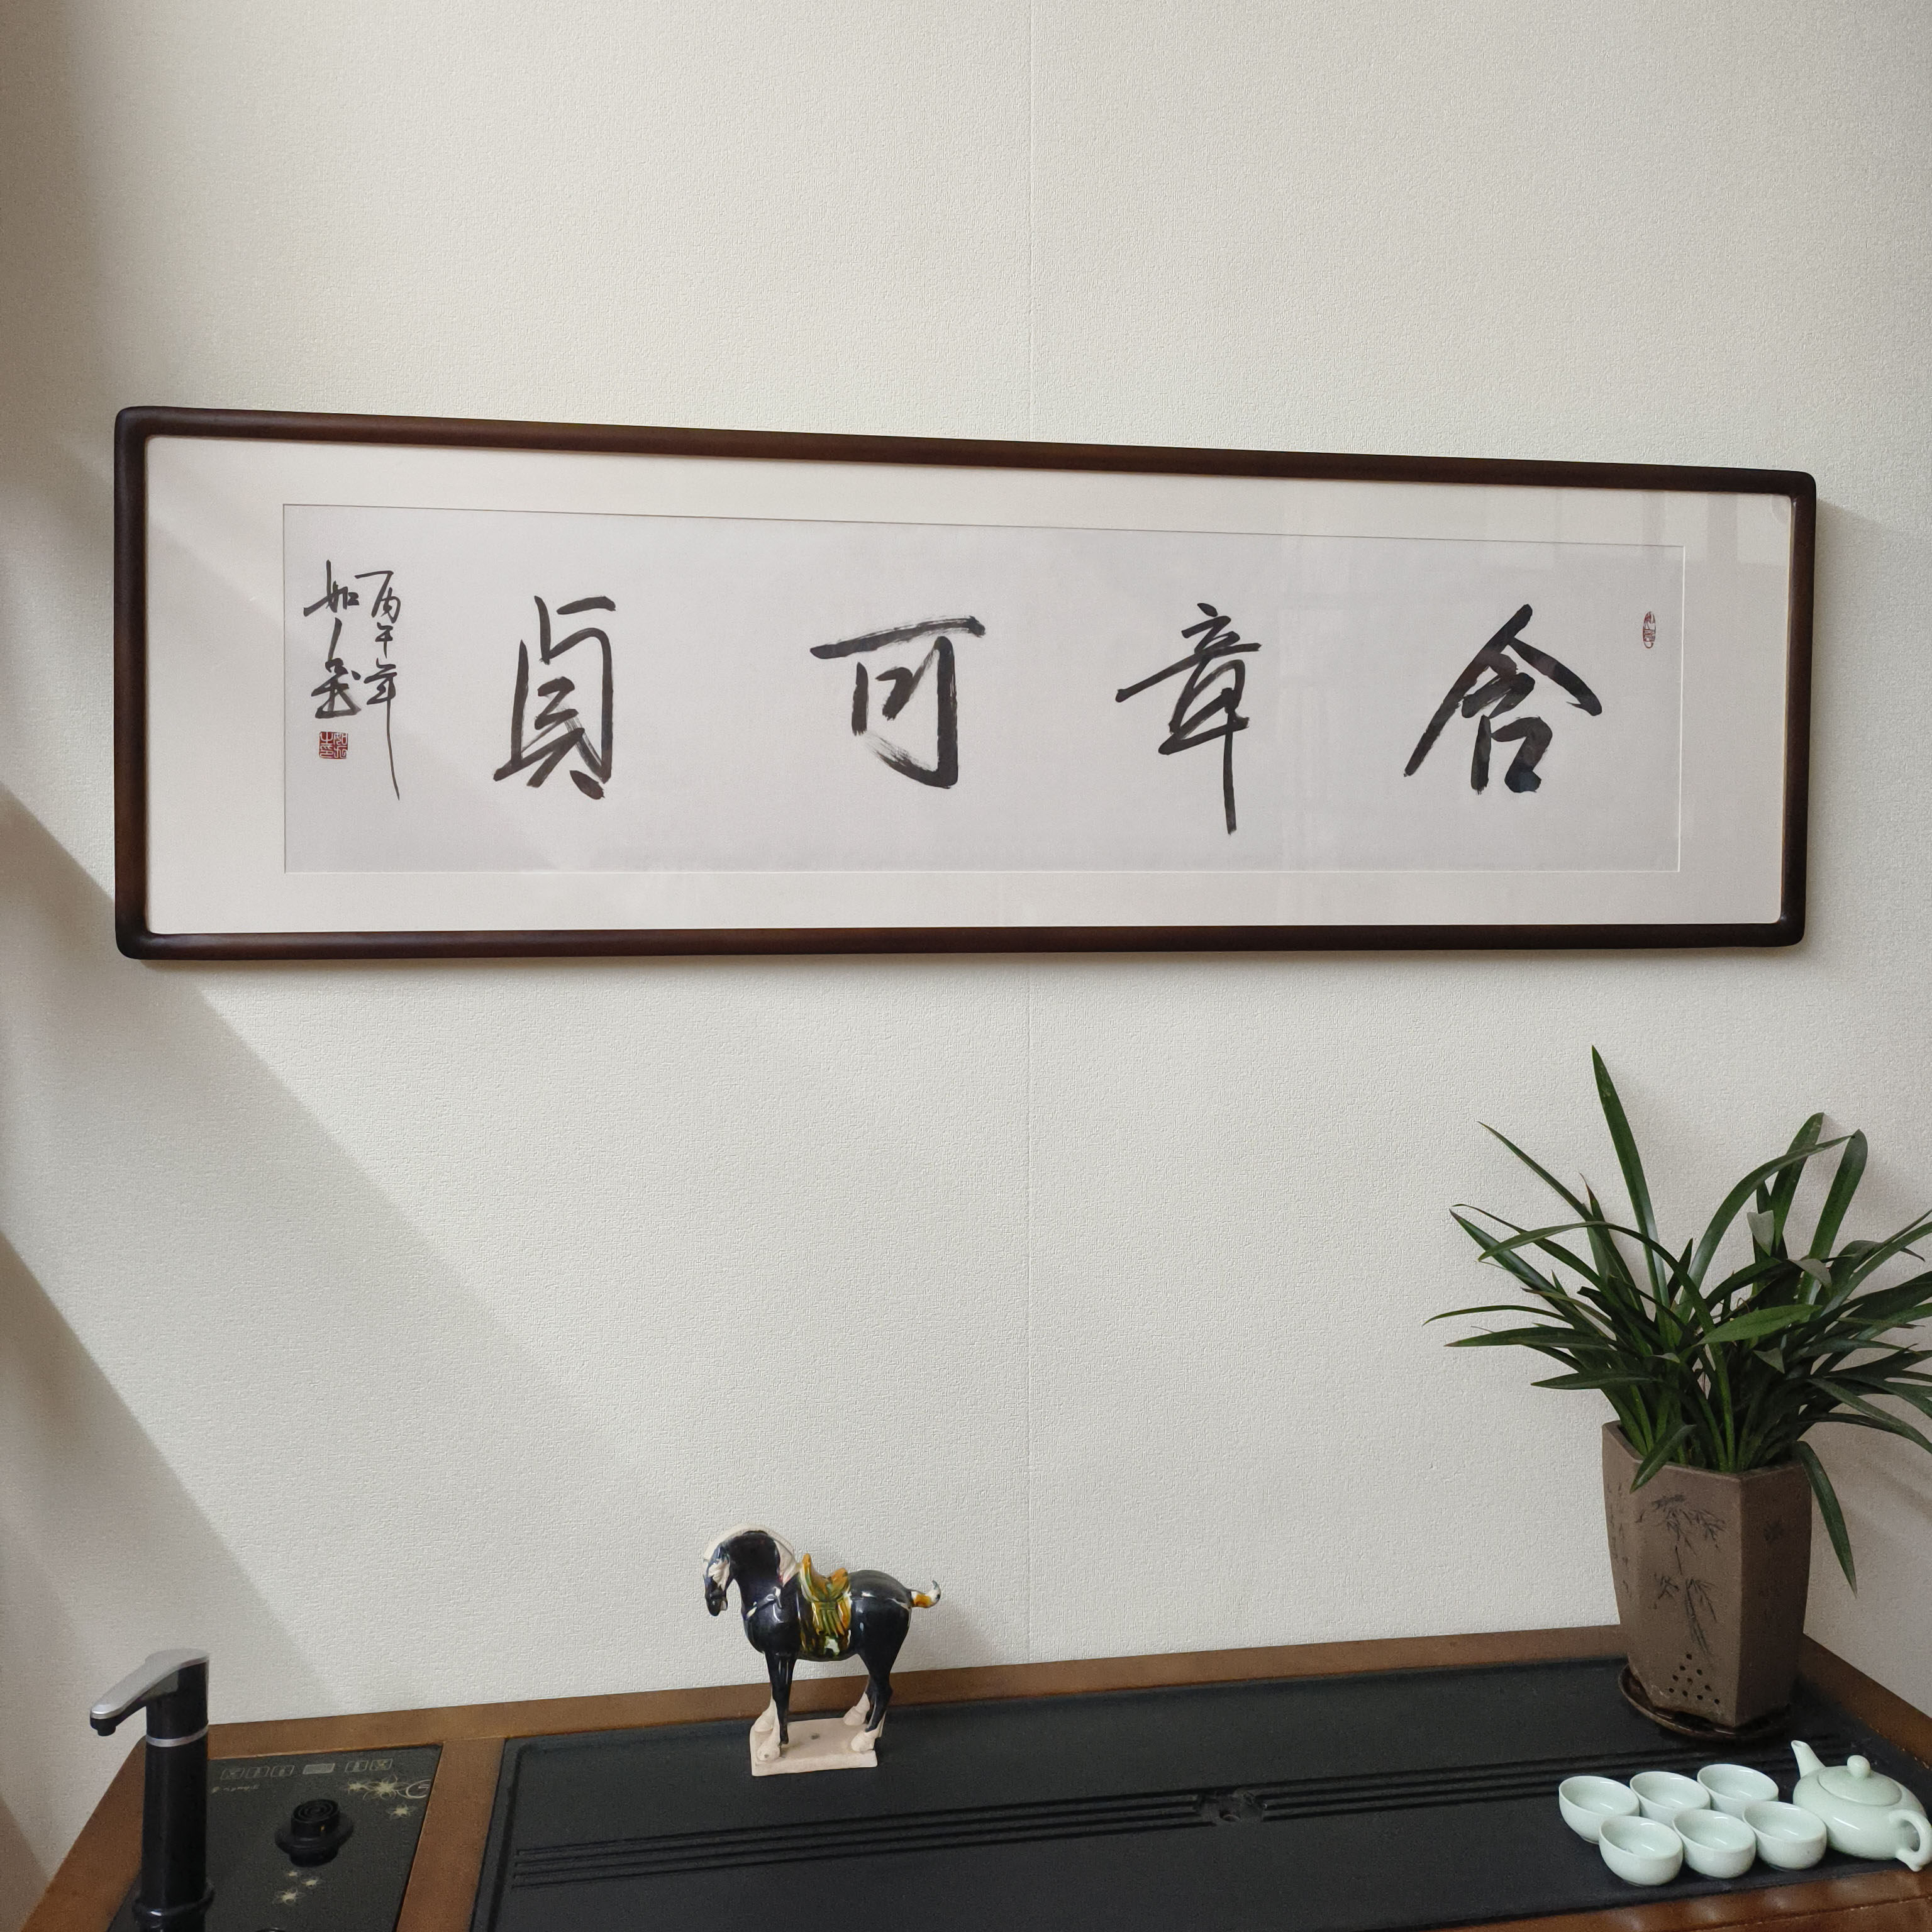 含章可貞
丙午年
如